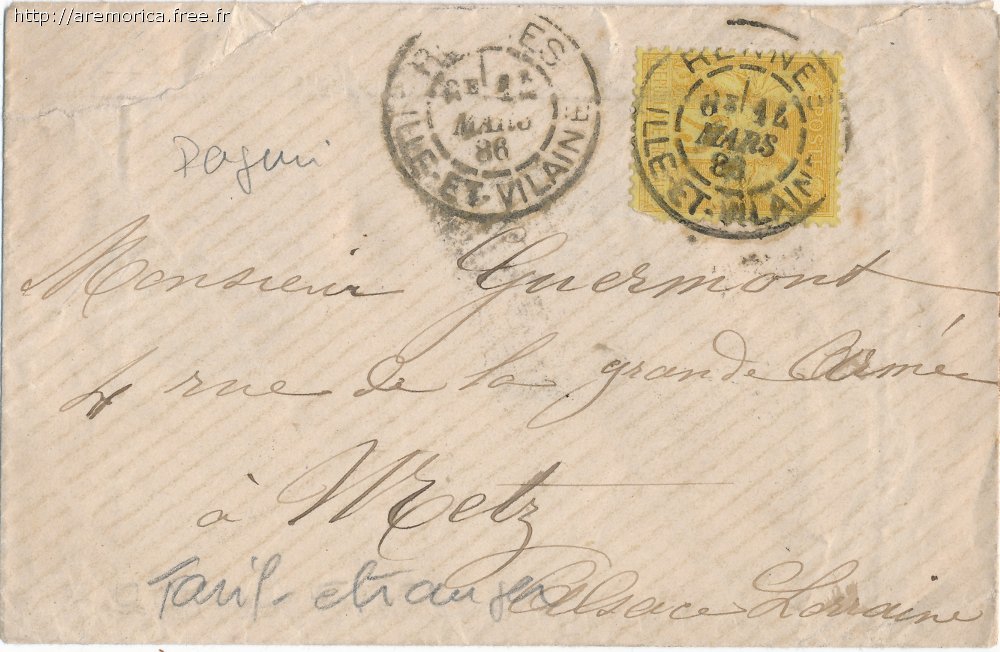 http://aremorica.free.fr
RENNES
6E 14
MARS
86
ILLE-ET-VILAINE
RENNE
6E 14
MARS
86
ILLE-ET-VILAIN
Daguin
Monsieur Guermont
4 rue de la grande Armée
à Metz
Alsace Lorraine
Tarif étranger